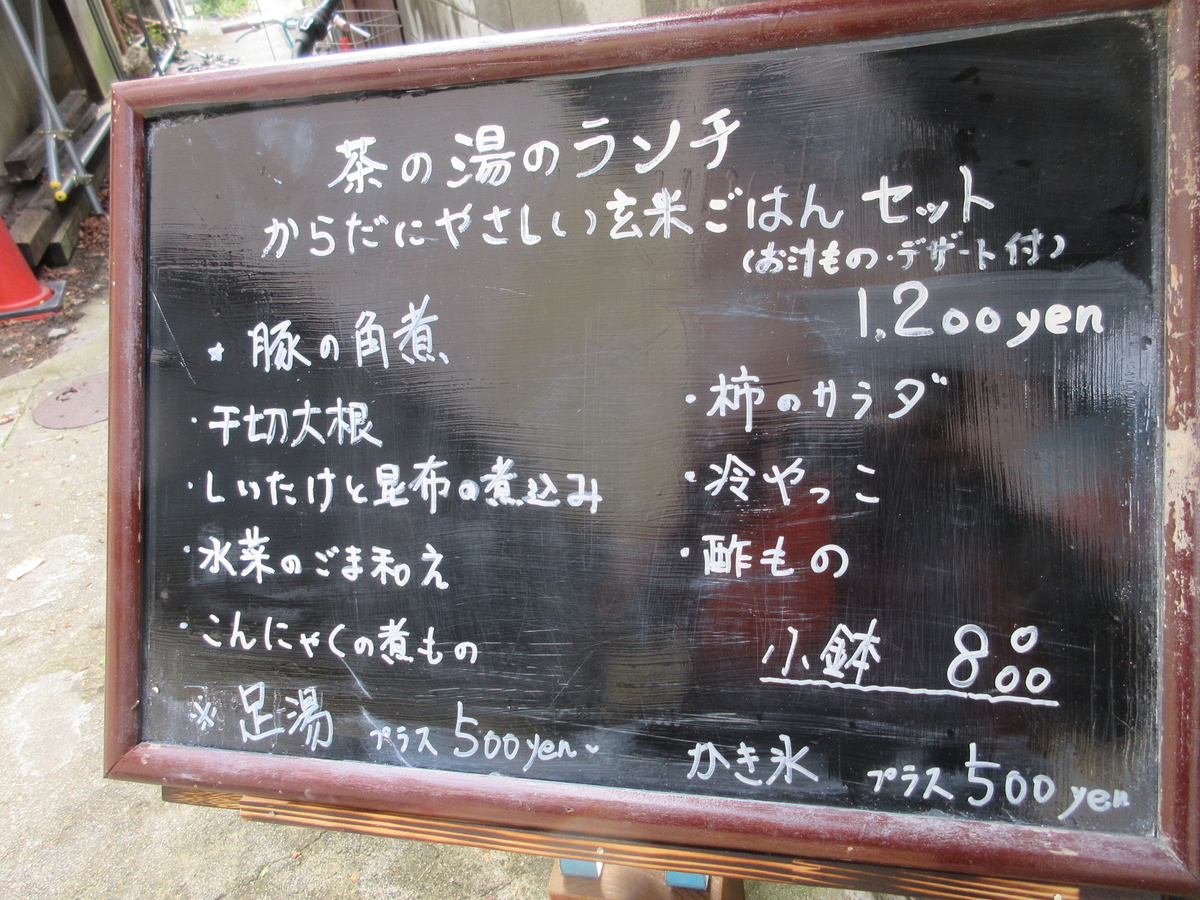 茶の湯のランチ
からだにやさしい玄米ごはん セット
(お汁もの・デザート付)
1,200yen
★ 豚の角煮
・干切大根
・しいたけと昆布の煮込み
・水菜のごま和え
・こんにゃくの煮もの
・柿のサラダ
・冷やっこ
・酢もの
小鉢 8品
※ 足湯 プラス 500yen
かき氷 プラス 500 yen